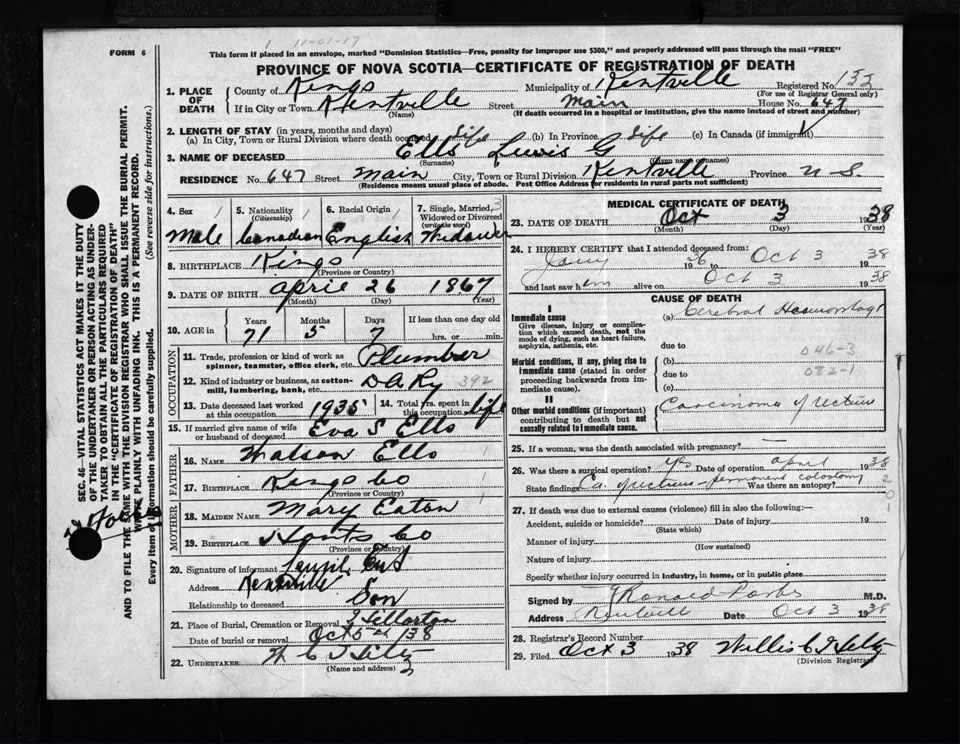 1 11-01-17
FORM 6
This form if placed in an envelope, marked "Dominion Statistics—Free, penalty for improper use $300," and properly addressed will pass through the mail "FREE"
PROVINCE OF NOVA SCOTIA—CERTIFICATE OF REGISTRATION OF DEATH
1. PLACE OF DEATH
County of Kings Municipality of Kentville Registered No. 133
(For use of Registrar General only)
If in City or Town Kentville Street Main House No. 647
(Name) (If death occurred in a hospital or institution, give the name instead of street and number)
2. LENGTH OF STAY (in years, months and days)
(a) In City, Town or Rural Division where death occurred life (b) In Province life (c) In Canada (if immigrant)
3. NAME OF DECEASED Ells Lewis G
(Surname)
RESIDENCE No. 647 Street Main City, Town or Rural Division Kentville Province N.S.
(Residence means usual place of abode. Post Office Address for residents in rural parts not sufficient)
4. Sex 5. Nationality (Citizenship) 6. Racial Origin 7. Single, Married, Widowed or Divorced (write the word)
Male Canadian English Widower
8. BIRTHPLACE Kings
(Province or Country)
9. DATE OF BIRTH April 26 1867
(Month) (Day) (Year)
10. AGE in Years Months Days If less than one day old
71 5 7 hrs. or min.
OCCUPATION
11. Trade, profession or kind of work as spinner, teamster, office clerk, etc. Plumber
12. Kind of industry or business, as cotton-mill, lumbering, bank, etc. D A Ry 392
13. Date deceased last worked at this occupation 1935
14. Total yrs. spent in this occupation life
15. If married give name of wife or husband of deceased Eva S Ells
FATHER
16. NAME Watson Ells
17. BIRTHPLACE Kings Co
MOTHER
18. MAIDEN NAME Mary Eaton
19. BIRTHPLACE Hants Co
(Province or Country)
20. Signature of informant
Address Kentville
Relationship to deceased Son
21. Place of Burial, Cremation or Removal
Date of burial or removal Oct 5 38
22. UNDERTAKER
(Name and address)
MEDICAL CERTIFICATE OF DEATH
23. DATE OF DEATH Oct 3 1938
(Month) (Day) (Year)
24. I HEREBY CERTIFY that I attended deceased from:
Jany 1936 to Oct 3 1938
and last saw him alive on Oct 3 1938
CAUSE OF DEATH
I
Immediate cause
Give disease, injury or complication which caused death, not the mode of dying, such as heart failure, asphyxia, asthenia, etc.
(a) Cerebral Haemorrhage
due to
046-3
Morbid conditions, if any, giving rise to immediate cause (stated in order proceeding backwards from immediate cause).
(b)
due to 082-1
(c)
II
Other morbid conditions (if important) contributing to death but not causally related to immediate cause.
Carcinoma of rectum
25. If a woman, was the death associated with pregnancy?
26. Was there a surgical operation? yes Date of operation April 1938
State findings Ca. rectum - permanent colostomy Was there an autopsy?
27. If death was due to external causes (violence) fill in also the following:—
Accident, suicide or homicide? Date of injury 19
(State which)
Manner of injury
(How sustained)
Nature of injury
Specify whether injury occurred in industry, in home, or in public place
Signed by M.D.
Address Kentville Date Oct 3 1938
28. Registrar's Record Number
29. Filed Oct 3 1938
(Division Registrar)
SEC. 46—VITAL STATISTICS ACT MAKES IT THE DUTY
OF THE UNDERTAKER OR PERSON ACTING AS UNDER-
TAKER TO OBTAIN ALL THE PARTICULARS REQUIRED
IN THE "CERTIFICATE OF REGISTRATION OF DEATH"
AND TO FILE THE SAME WITH THE DIVISION REGISTRAR WHO SHALL ISSUE THE BURIAL PERMIT.
WRITE PLAINLY WITH UNFADING INK. THIS IS A PERMANENT RECORD.
Every item of information should be carefully supplied. (See reverse side for instructions.)